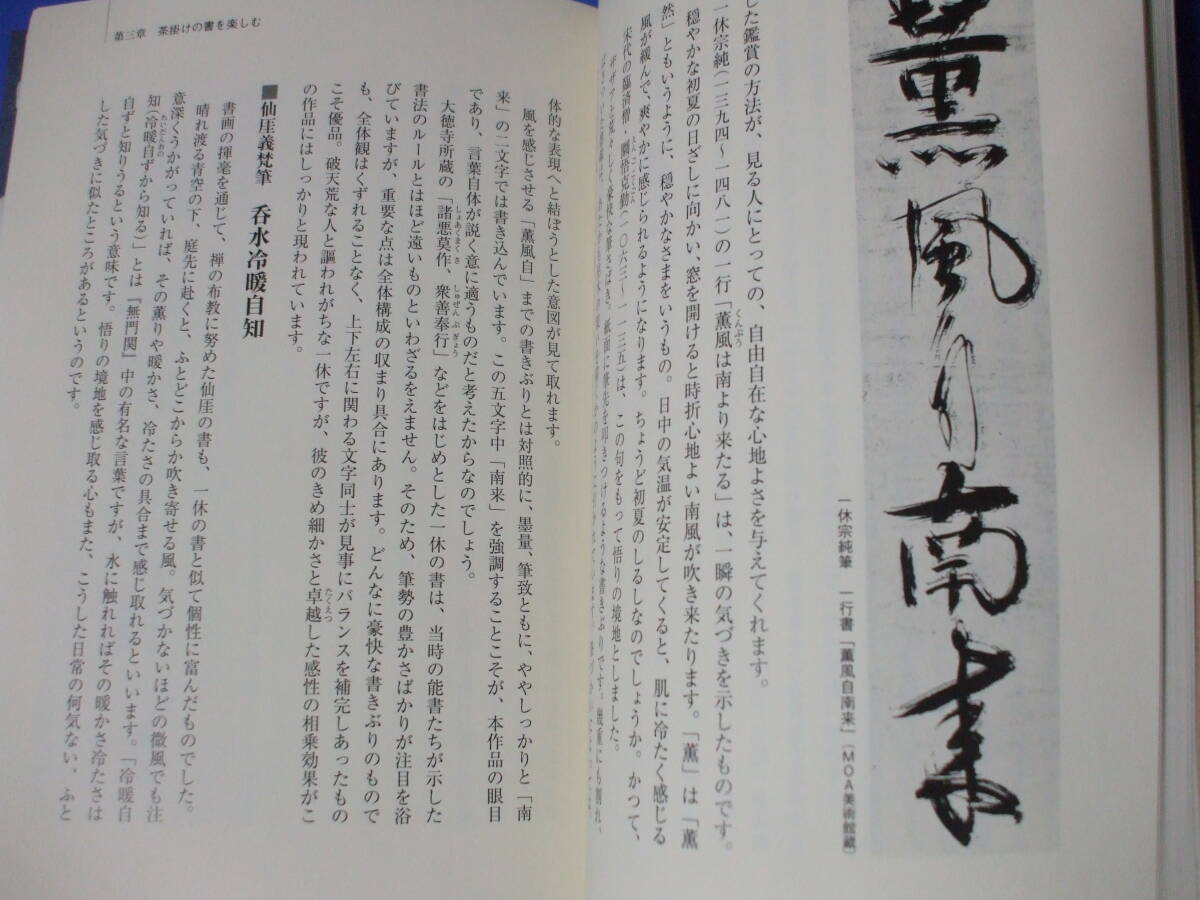 薫風自南来
一休宗純筆　一行書「薫風自南来」(MOA美術館蔵)
した鑑賞の方法が、見る人にとっての、自由自在な心地よさを与えてくれます。
一休宗純(一三九四〜一四八一)の一行「薫風は南より来たる」は、一瞬の気づきを示したものです。
くんぷう
穏やかな初夏の日ざしに向かい、窓を開けると時折心地よい南風が吹き来たります。「薫」は「薫
然」ともいうように、穏やかなさまをいうもの。日中の気温が安定してくると、肌に冷たく感じる
風が緩んで、爽やかに感じられるようになります。ちょうど初夏のしるしなのでしょうか。かつて、
宋代の臨済僧・圜悟克勤(一〇六三〜一一三五)は、この句をもって悟りの境地としました。
豪快な筆さばき。紙面に筆先を叩きつけるような書きぶりです。幾重にも割れ、
第三章　茶掛けの書を楽しむ
体的な表現へと結ぼうとした意図が見て取れます。
風を感じさせる「薫風自」までの書きぶりとは対照的に、墨量、筆致ともに、ややしっかりと「南
来」の二文字では書き込んでいます。この五文字中「南来」を強調することこそが、本作品の眼目
であり、言葉自体が説く意に適うものだと考えたからなのでしょう。
大徳寺所蔵の「諸悪莫作、衆善奉行」などをはじめとした一休の書は、当時の能書たちが示した
しょあくまくさ
しゅぜんぶぎょう
書法のルールとはほど遠いものといわざるをえません。そのため、筆勢の豊かさばかりが注目を浴
びていますが、重要な点は全体構成の収まり具合にあります。どんなに豪快な書きぶりのもので
も、全体観はくずれることなく、上下左右に関わる文字同士が見事にバランスを補完しあったもの
こそ優品。破天荒な人と謳われがちな一休ですが、彼のきめ細かさと卓越した感性の相乗効果がこ
たくえつ
の作品にはしっかりと現われています。
■仙厓義梵筆　呑水冷暖自知
書画の揮毫を通じて、禅の布教に努めた仙厓の書も、一休の書と似て個性に富んだものでした。
晴れ渡る青空の下、庭先に赴くと、ふとどこからか吹き寄せる風。気づかないほどの微風でも注
意深くうかがっていれば、その薫りや暖かさ、冷たさの具合まで感じ取れるといいます。「冷暖自
知(冷暖自ずから知る)」とは『無門関』中の有名な言葉ですが、水に触れればその暖かさ冷たさは
れいだんおの
自ずと知りうるという意味です。悟りの境地を感じ取る心もまた、こうした日常の何気ない、ふと
した気づきに似たところがあるというのです。